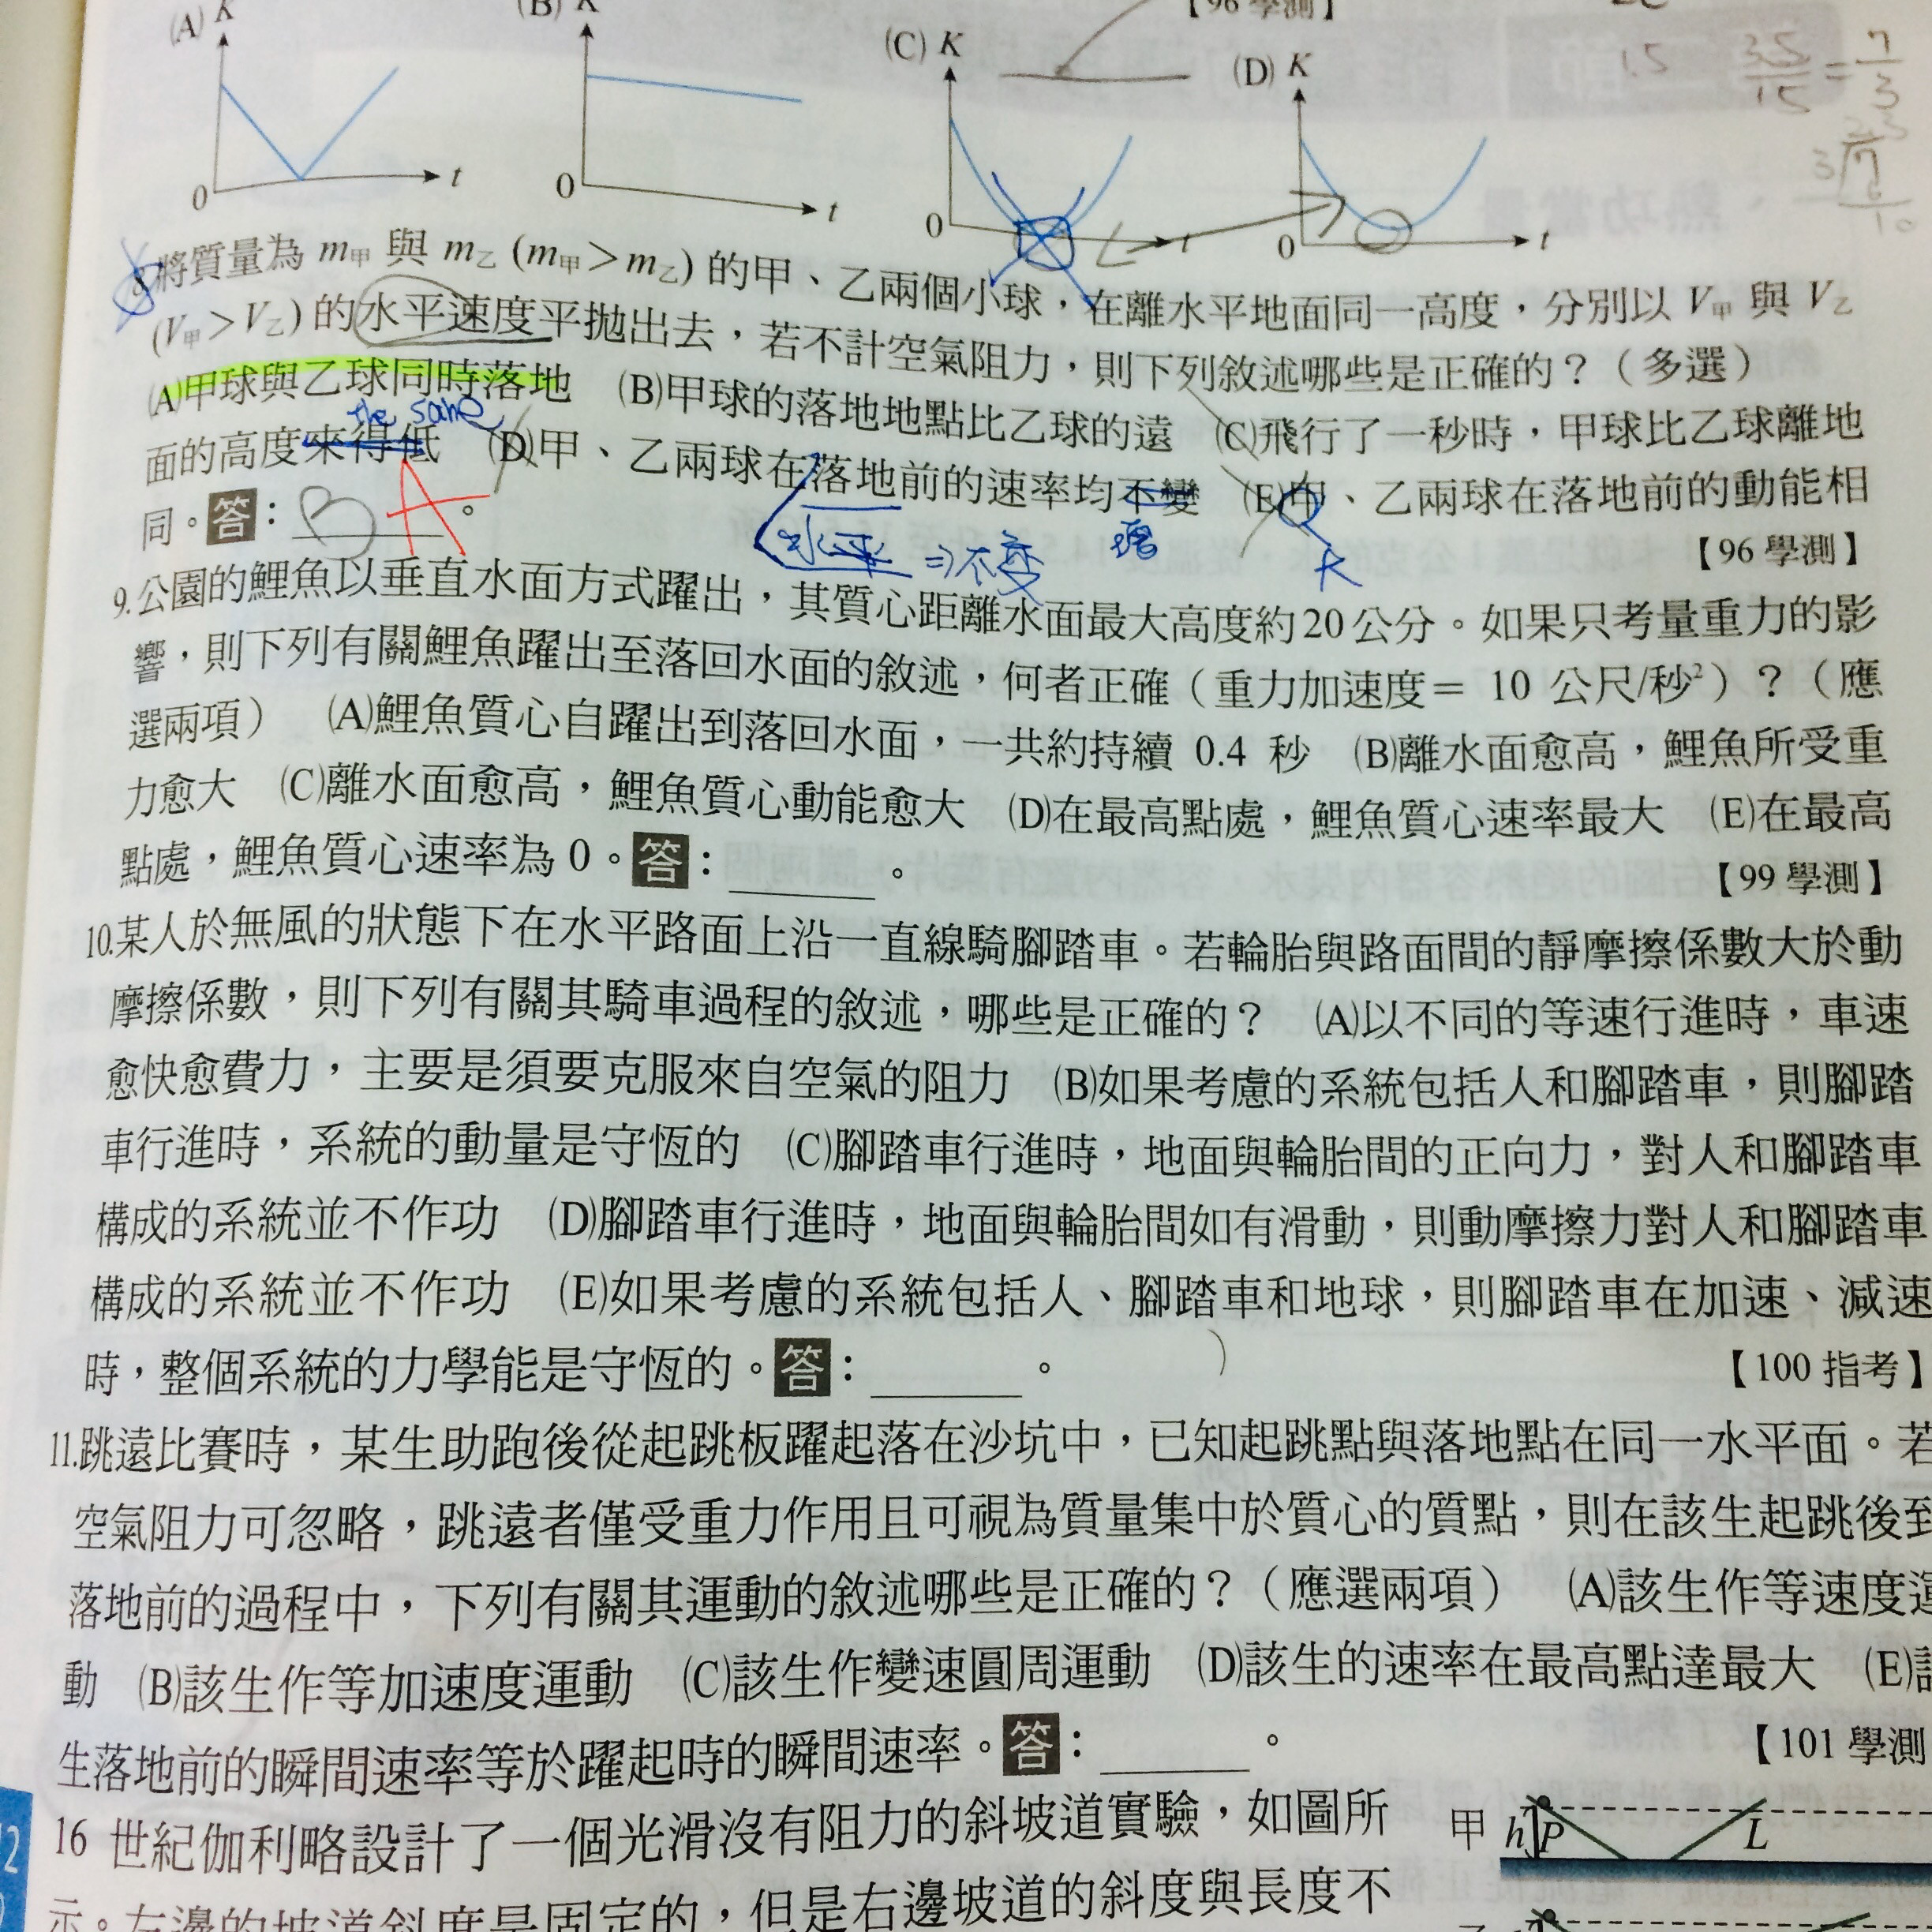 (A) K
(B) K
【96學測】
(C) K
(D) K
1.5
35/15 = 7/3
0 t
0 t
0 t
0 t
8.將質量為 m甲 與 m乙 (m甲>m乙) 的甲、乙兩個小球，在離水平地面同一高度，分別以 V甲 與 V乙
(V甲>V乙) 的水平速度平拋出去，若不計空氣阻力，則下列敘述哪些是正確的？（多選）
(A)甲球與乙球同時落地 (B)甲球的落地地點比乙球的遠 (C)飛行了一秒時，甲球比乙球離地
the same
面的高度來得低 (D)甲、乙兩球在落地前的速率均不變 (E)甲、乙兩球在落地前的動能相
同。答：B A。
水平⇒不變
增
大
【96學測】
9.公園的鯉魚以垂直水面方式躍出，其質心距離水面最大高度約20公分。如果只考量重力的影
響，則下列有關鯉魚躍出至落回水面的敘述，何者正確（重力加速度＝ 10 公尺/秒²）？（應
選兩項） (A)鯉魚質心自躍出到落回水面，一共約持續 0.4 秒 (B)離水面愈高，鯉魚所受重
力愈大 (C)離水面愈高，鯉魚質心動能愈大 (D)在最高點處，鯉魚質心速率最大 (E)在最高
點處，鯉魚質心速率為 0。答：＿＿＿。
【99學測】
10.某人於無風的狀態下在水平路面上沿一直線騎腳踏車。若輪胎與路面間的靜摩擦係數大於動
摩擦係數，則下列有關其騎車過程的敘述，哪些是正確的？ (A)以不同的等速行進時，車速
愈快愈費力，主要是須要克服來自空氣的阻力 (B)如果考慮的系統包括人和腳踏車，則腳踏
車行進時，系統的動量是守恆的 (C)腳踏車行進時，地面與輪胎間的正向力，對人和腳踏車
構成的系統並不作功 (D)腳踏車行進時，地面與輪胎間如有滑動，則動摩擦力對人和腳踏車
構成的系統並不作功 (E)如果考慮的系統包括人、腳踏車和地球，則腳踏車在加速、減速
時，整個系統的力學能是守恆的。答：＿＿＿。
【100指考】
11.跳遠比賽時，某生助跑後從起跳板躍起落在沙坑中，已知起跳點與落地點在同一水平面。若
空氣阻力可忽略，跳遠者僅受重力作用且可視為質量集中於質心的質點，則在該生起跳後到
落地前的過程中，下列有關其運動的敘述哪些是正確的？（應選兩項） (A)該生作等速度運
動 (B)該生作等加速度運動 (C)該生作變速圓周運動 (D)該生的速率在最高點達最大 (E)該
生落地前的瞬間速率等於躍起時的瞬間速率。答：＿＿＿。
【101學測
16 世紀伽利略設計了一個光滑沒有阻力的斜坡道實驗，如圖所
甲 h P L
示。左邊的坡道斜度是固定的，但是右邊坡道的斜度與長度不